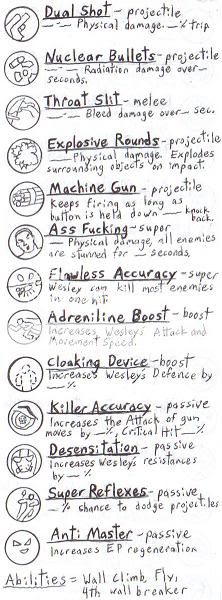 Dual Shot - projectile
__-__ Physical damage. __% trip
Nuclear Bullets - projectile
__-__ Radiation damage over __
seconds.
Throat Slit - melee
__-__ Bleed damage over __ sec.
Explosive Rounds - projectile
__-__ Physical damage. Explodes
surrounding objects on impact.
Machine Gun - projectile
Keeps firing as long as
button is held down __ knock
back.
Ass Fucking - super
__ Physical damage, all enemies
are stunned for __ seconds.
Flawless Accuracy - super
Wesley can kill most enemies
in one hit.
Adreniline Boost - boost
Increases Wesley's Attack and
Movement Speed.
Cloaking Device - boost
Increases Wesley's Defence by
__%
Killer Accuracy - passive
Increases the Attack of gun
moves by __%. Critical Hit __%
Desensitation - passive
Increases Wesley's resistances
by __%
Super Reflexes - passive
__% chance to dodge projectiles
Anti Master - passive
Increases EP regeneration
Abilities = Wall Climb, Fly,
4th wall breaker